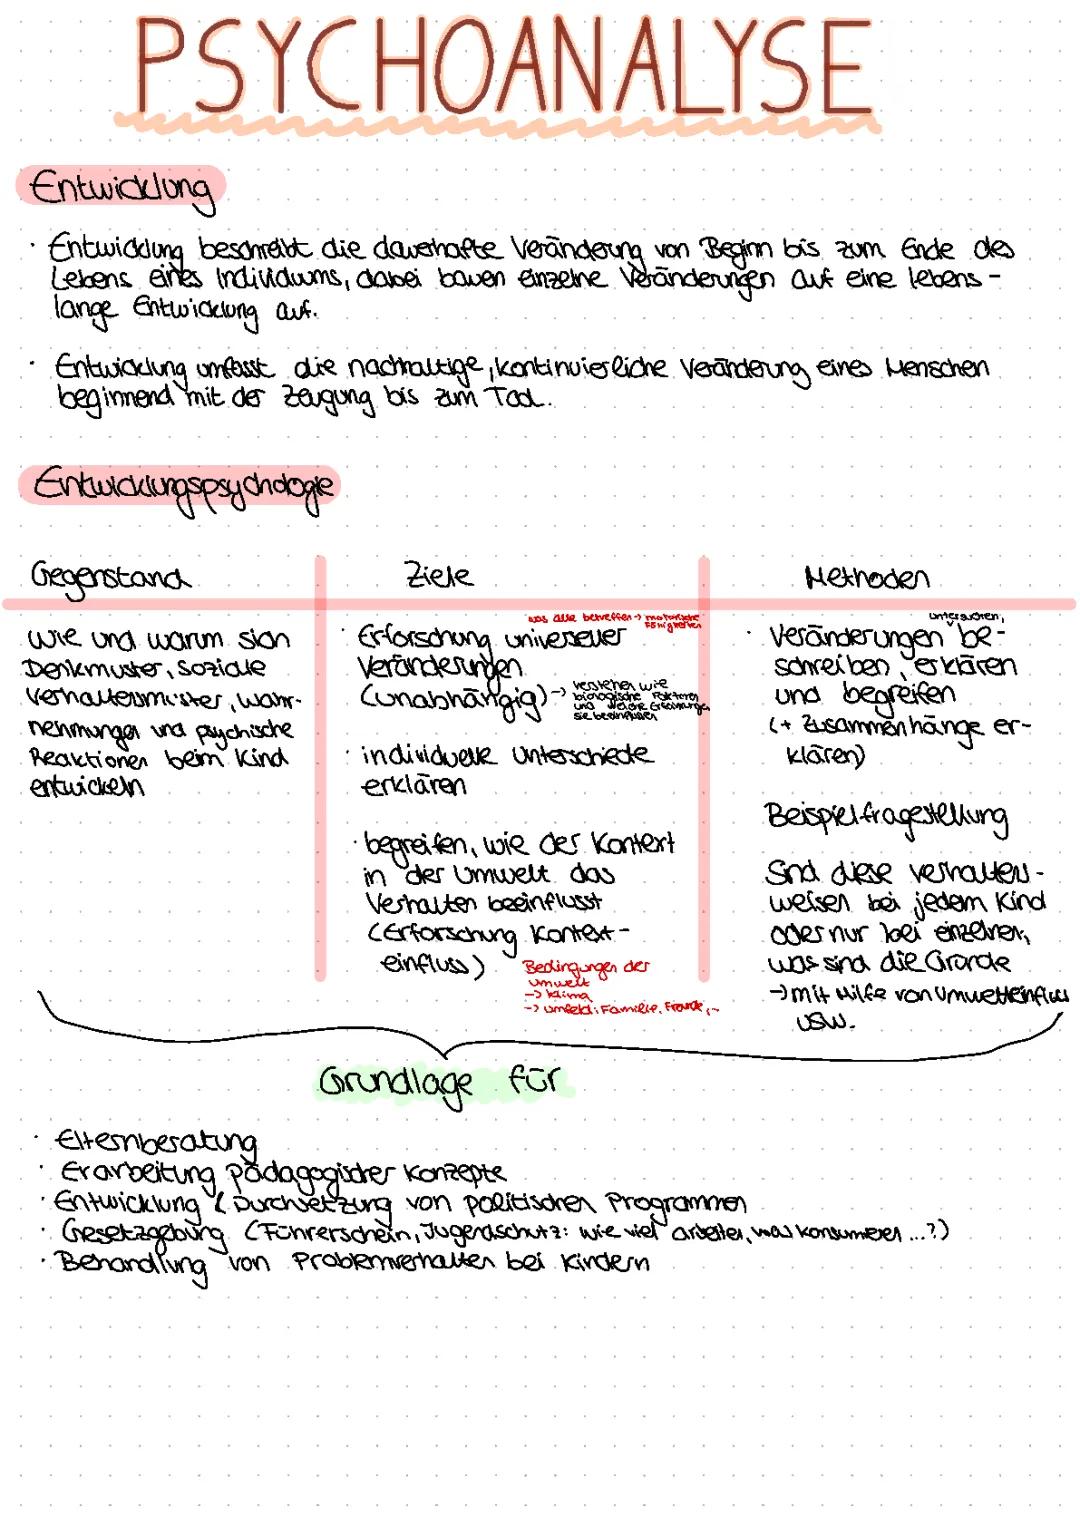 PSYCHOANALYSE
Entwicklung
· Entwicklung beschreibt die dauerhafte Veränderung von Beginn bis zum Ende des
Lebens eines Individuums, dabei bauen einzelne Veränderungen auf eine lebens-
lange Entwicklung auf.
· Entwicklung umfasst die nachhaltige, kontinuierliche Veränderung eines Menschen
beginnend mit der Zeugung bis zum Tod.
Entwicklungspsychologie
Gegenstand
wie und warum sich
Denkmuster, soziale
Verhaltensmuster, Wahr-
nehmungen und psychische
Reaktionen beim Kind
entwickeln
Ziele
was alle betreffen → motorische
Fähigkeiten
· Erforschung universeller
Veränderungen
(unabhängig)
→ verstehen wie
biologische Faktoren
und welche Erfahrungen
sie beeinflussen
· individuelle Unterschiede
erklären
· begreifen, wie der Kontext
in der Umwelt das
Verhalten beeinflusst
(Erforschung Kontext-
einfluss)
Bedingungen der
Umwelt
→ Klima
→ Umfeld: Familie, Freunde,...
Methoden
untersuchen,
· Veränderungen be-
schreiben, erklären
und begreifen
(+ Zusammenhänge er-
klären)
Beispielfragestellung
Sind diese Verhaltens-
weisen bei jedem Kind
oder nur bei einzelnen,
was sind die Gründe
→ mit Hilfe von Umwelteinfluss
usw.
Grundlage für
· Elternberatung
· Erarbeitung pädagogischer Konzepte
· Entwicklung & Durchsetzung von politischen Programmen
· Gesetzgebung (Führerschein, Jugendschutz: wie viel arbeiten, was konsumieren ...?)
· Behandlung von Problemverhalten bei Kindern